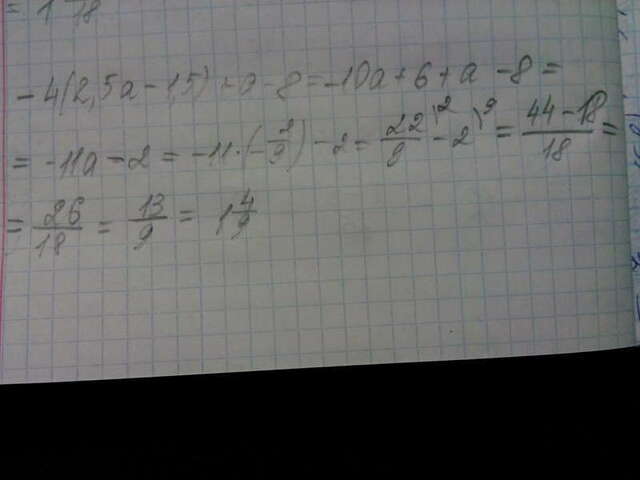 = 1 18
-4(2,5a-1,5)+a-8=-10a+6+a-8=
=-11a-2=-11·(-2/9)-2=22/9\2-2\9=44-18/18=
=26/18=13/9=1 4/9